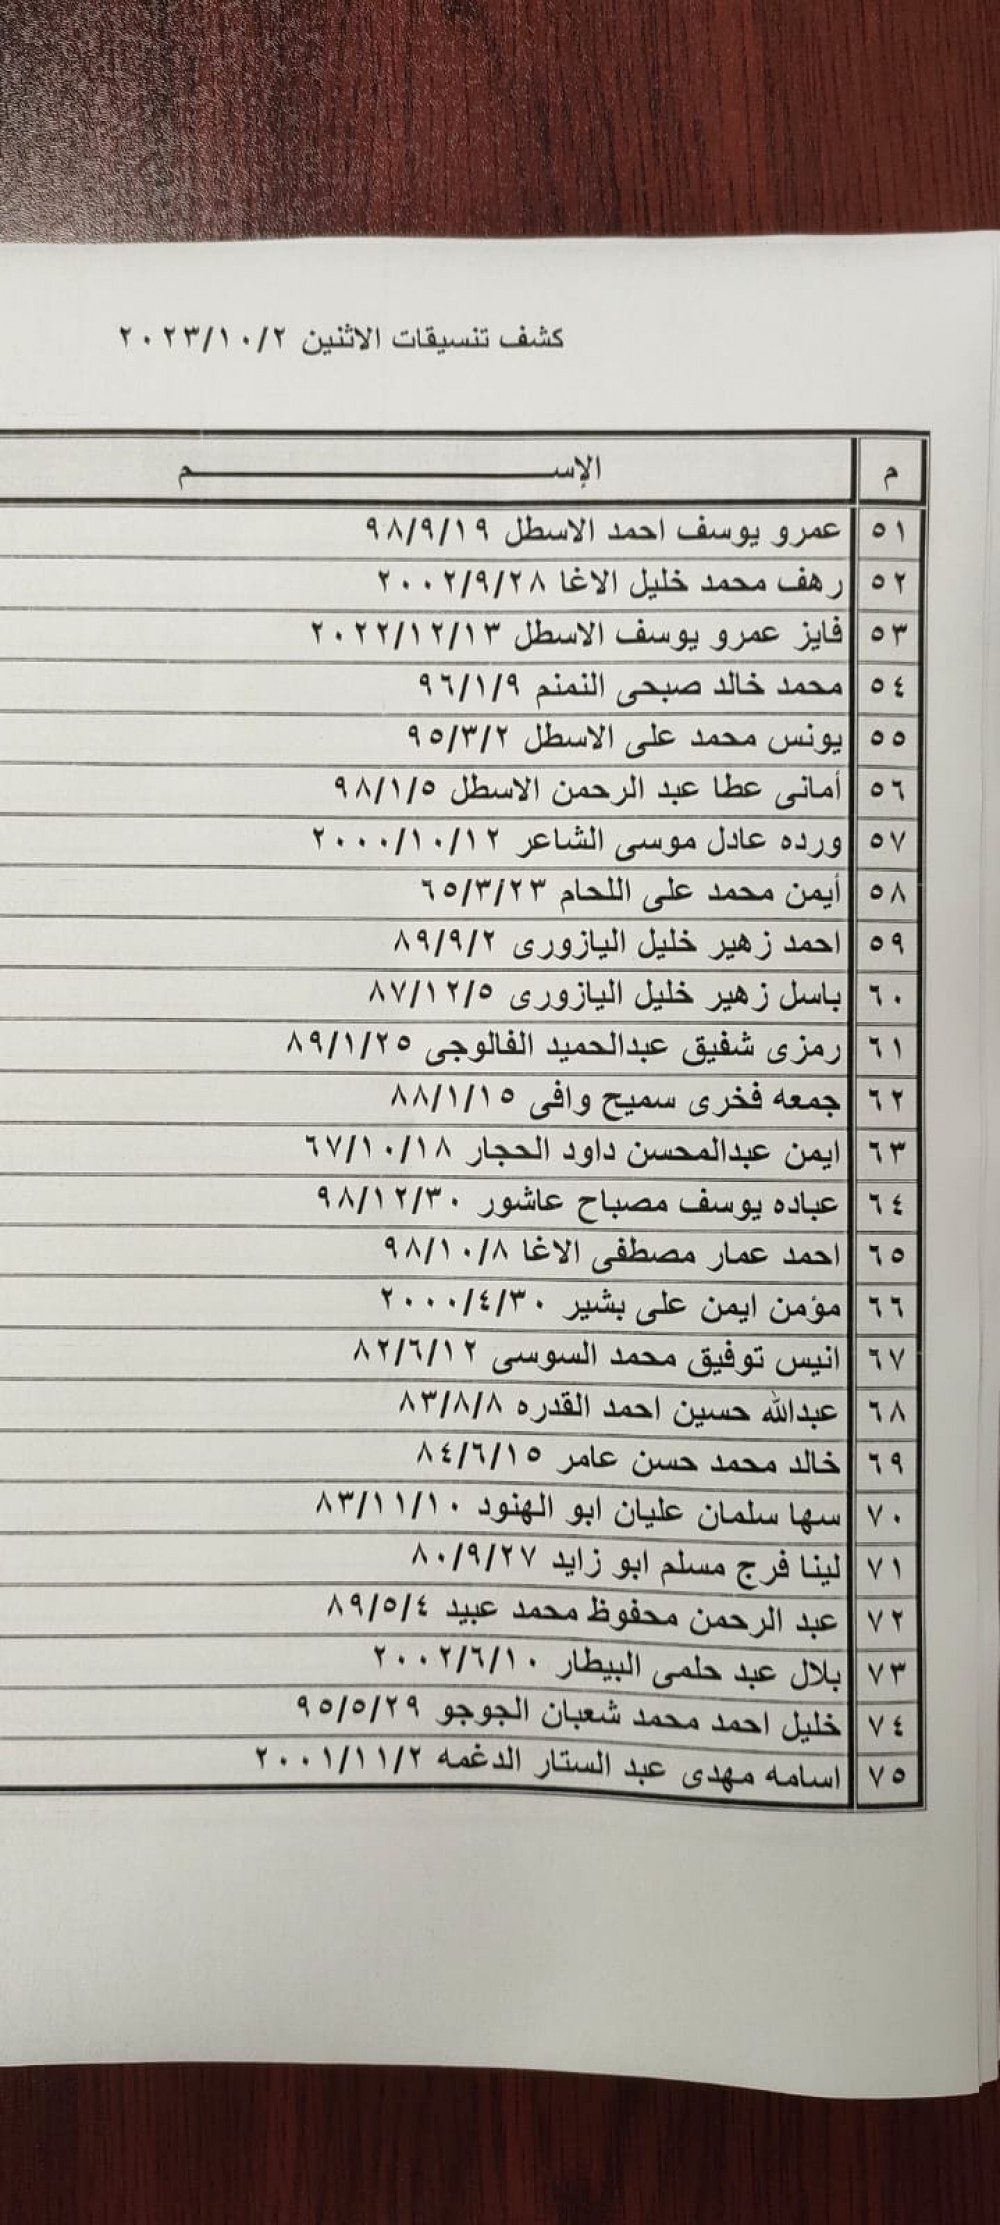 كشف تنسيقات الاثنين ٢٠٢٣/١٠/٢
م الإســـــــم
٥١ عمرو يوسف احمد الاسطل ٩٨/٩/١٩
٥٢ رهف محمد خليل الاغا ٢٠٠٢/٩/٢٨
٥٣ فايز عمرو يوسف الاسطل ٢٠٢٢/١٢/١٣
٥٤ محمد خالد صبحى النمنم ٩٦/١/٩
٥٥ يونس محمد على الاسطل ٩٥/٣/٢
٥٦ أمانى عطا عبد الرحمن الاسطل ٩٨/١/٥
٥٧ ورده عادل موسى الشاعر ٢٠٠٠/١٠/١٢
٥٨ أيمن محمد على اللحام ٦٥/٣/٢٣
٥٩ احمد زهير خليل اليازورى ٨٩/٩/٢
٦٠ باسل زهير خليل اليازورى ٨٧/١٢/٥
٦١ رمزى شفيق عبدالحميد الفالوجى ٨٩/١/٢٥
٦٢ جمعه فخرى سميح وافى ٨٨/١/١٥
٦٣ ايمن عبدالمحسن داود الحجار ٦٧/١٠/١٨
٦٤ عباده يوسف مصباح عاشور ٩٨/١٢/٣٠
٦٥ احمد عمار مصطفى الاغا ٩٨/١٠/٨
٦٦ مؤمن ايمن على بشير ٢٠٠٠/٤/٣٠
٦٧ انيس توفيق محمد السوسى ٨٢/٦/١٢
٦٨ عبدالله حسين احمد القدره ٨٣/٨/٨
٦٩ خالد محمد حسن عامر ٨٤/٦/١٥
٧٠ سها سلمان عليان ابو الهنود ٨٣/١١/١٠
٧١ لينا فرج مسلم ابو زايد ٨٠/٩/٢٧
٧٢ عبد الرحمن محفوظ محمد عبيد ٨٩/٥/٤
٧٣ بلال عبد حلمى البيطار ٢٠٠٢/٦/١٠
٧٤ خليل احمد محمد شعبان الجوجو ٩٥/٥/٢٩
٧٥ اسامه مهدى عبد الستار الدغمه ٢٠٠١/١١/٢